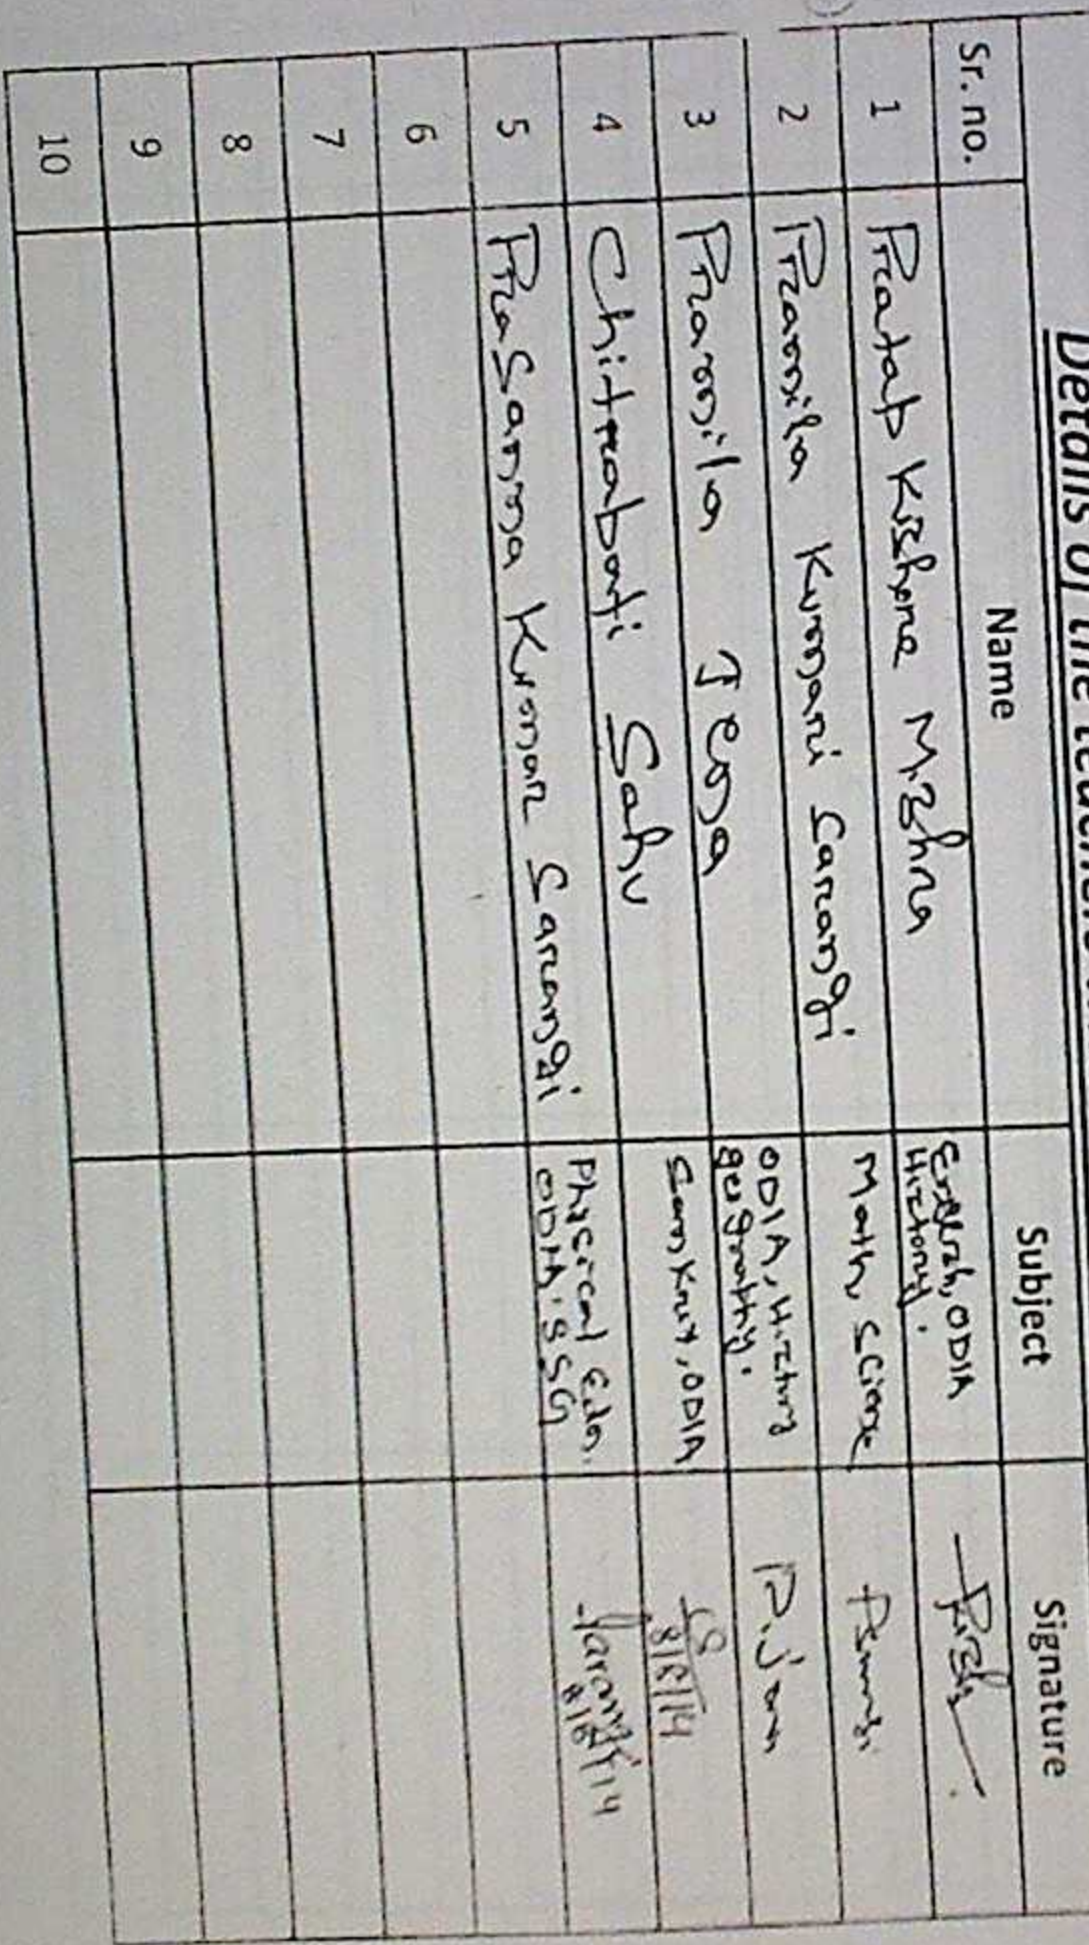 Details of the teachers
Sr. no. Name Subject Signature
1 Pratap Kishore Mishra English, ODIA
History.
2 Pramila Kumari Sarangi Math, Science
3 Pramila Jena ODIA, History P. Jena
geography.
4 Chitrabati Sahu Sanskrit, ODIA 8/8/14
5 Prasanna Kumar Sarangi Physical Edn.
ODIA. SSG
6
7
8
9
10